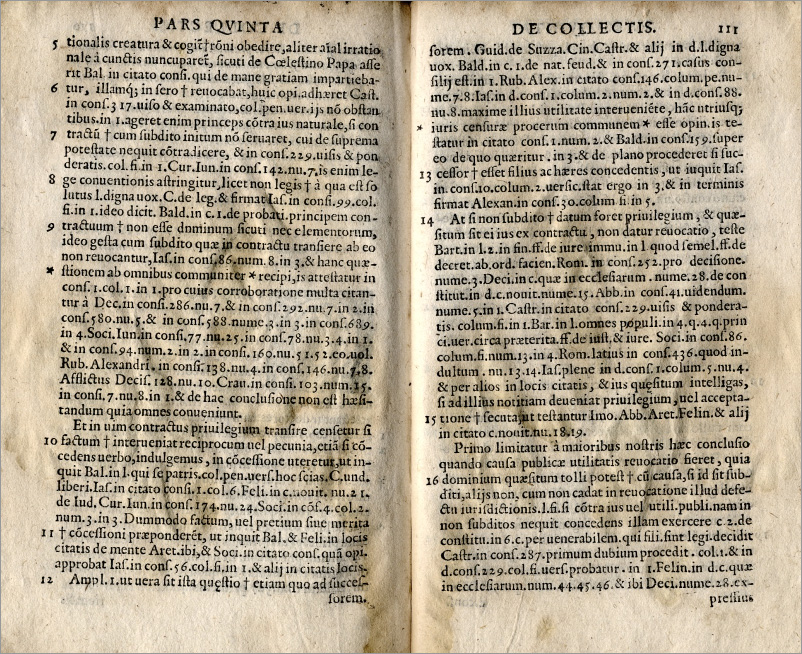 PARS QVINTA
5 tionalis creatura & cogit†rōni obedire, aliter aīal irratio
nale à cunctis nuncuparet, sicuti de Cœlestino Papa asse
rit Bal in citato consi. qui de mane gratiam impartieba-
6 tur, illamq; in sero † reuocabat, huic opi. adhæret Cast.
in cons. 317. uiso & examinato, col. pen. uer. ijs nō obstan
tibus. in 1. ageret enim princeps cōtra ius naturale, si con
7 tractū † cum subdito initum nō seruaret, cui de suprema
potestate nequit cōtradicere, & in cons. 229. uisis & pon
deratis. col. fi. in 1. Cur. Iun. in cons. 142. nu. 7. is enim le-
8 ge conuentionis astringitur, licet non legis † à qua est so
lutus l. digna uox. C. de leg. & firmat Ias. in consi. 99. col.
fi. in 1. ideo dicit. Bald. in c. 1. de probati. principem con-
9 tractuum † non esse dominum sicuti nec elementorum,
ideo gesta cum subdito quæ in contractu transiere ab eo
non reuocantur, Ias. in cons. 86. num. 8. in 3. & hanc quæ-
* stionem ab omnibus communiter * recipi, is attestatur in
cons. 1. col. 1. in 1. pro cuius corroboratione multa citan-
tur à Dec. in consi. 286. nu. 7. & in cons. 292. nu. 7. in 2. in
cons. 580. nu. 5. & in cons. 588. nume. 3. in 3. in cons. 689.
in 4. Soci. Iun. in consi. 77. nu. 25. in cons. 78. nu. 3. 4. in 1.
& in cons. 94. num. 2. in 2. in consi. 160. nu. 51. 52. eo. uol.
Rub. Alexandri. in consi. 138. nu. 4. in cons. 146. nu. 7. 8.
Afflictus Decis. 128. nu. 10. Crau. in consi. 103. num. 15.
in consi. 7. nu. 8. in 1. & de hac conclusione non est hæsi-
tandum quia omnes conueniunt.
Et in uim contractus priuilegium transire censetur si
10 factum † interueniat reciprocum uel pecunia, etiā si cō-
cedens uerbo, indulgemus, in cōcessione uteretur, ut in-
quit Bal. in l. qui se patris. col. pen. uers. hoc scias. C. und.
liberi. Ias. in citato consi. 1. col. 6. Feli. in c. nouit. nu. 21.
de Iud. Cur. Iun. in cons. 174. nu. 24. Soci. in cōs. 4. col. 2.
num. 3. in 3. Dummodo factum, uel pretium siue merita
11 † cōcessioni præponderēt, ut inquit Bal. & Feli. in locis
citatis de mente Aret. ibi, & Soci. in citato cons. quā opi.
approbat Ias. in cons. 56. col. fi. in 1. & alij in citatis locis.
12 Ampl. 1. ut uera sit ista quęstio † etiam quo ad succes-
sorem.
DE COLLECTIS. 111
sorem. Guid. de Suzza. Cin. Castr. & alij in d. l. digna
uox. Bald. in c. 1. de nat. feud. & in cons. 271. casus con-
silij est. in 1. Rub. Alex. in citato cons. 146. colum. pe. nu-
me. 7. 8. Ias. in d. cons. 1. colum. 2. num. 2. & in d. cons. 88.
nu. 8. maxime illius utilitate interueniēte, hāc utriusq;
* iuris censuræ procerum communem * esse opin. is te-
statur in citato cons. 1. num. 2. & Bald. in cons. 159. super
eo de quo quæritur. in 3. & de plano procederet si suc-
13 cessor † esset filius ac hæres concedentis, ut iuquit Ias.
in. cons. 10. colum. 2. uersic. stat ergo in 3. & in terminis
firmat Alexan. in cons. 30. colum. fi. in 5.
14 At si non subdito † datum foret priuilegium, & quæ-
situm sit ei ius ex contractu, non datur reuocatio, teste
Bart. in l. 2. in fin. ff. de iure immu. in l. quod semel. ff. de
decret. ab. ord. facien. Rom. in cons. 252. pro decisione.
nume. 3. Deci. in c. quæ in ecclesiarum. nume. 28. de con
stitut. in d. c. nouit. nume. 15. Abb. in cons. 41. uidendum.
nume. 5. in 1. Castr. in citato cons. 229. uisis & pondera-
tis. colum. fi. in 1. Bar. in l. omnes populi. in 4. q. 4. q. prin
ci. uer. circa præterita. ff. de iust. & iure. Soci. in cons. 86.
colum. fi. num. 13. in 4. Rom. latius in cons. 436. quod in-
dultum. nu. 13. 14. Ias. plene in d. cons. 1. colum. 5. nu. 4.
& per alios in locis citatis, & ius quęsitum intelligas,
si ad illius notitiam deueniat priuilegium, uel accepta-
15 tione † secuta, ut testantur Imo. Abb. Aret. Felin. & alij
in citato c. nouit. nu. 18. 19.
Primo limitatur à maioribus nostris hæc conclusio
quando causa publicæ utilitatis reuocatio fieret, quia
16 dominium quæsitum tolli potest † cū causa, si id sit sub-
diti, alijs non, cum non cadat in reuocatione illud defe-
ctu iurisdictionis. l. fi. si cōtra ius uel utili. publi. nam in
non subditos nequit concedens illam exercere c. 2. de
constitu. in 6. c. per uenerabilem. qui fili. sint legi. decidit
Castr. in cons. 287. primum dubium procedit. col. 1. & in
d. cons. 229. col. fi. uers. probatur. in 1. Felin. in d. c. quæ
in ecclesiarum. num. 44. 45. 46. & ibi Deci. nume. 28. ex-
pressius